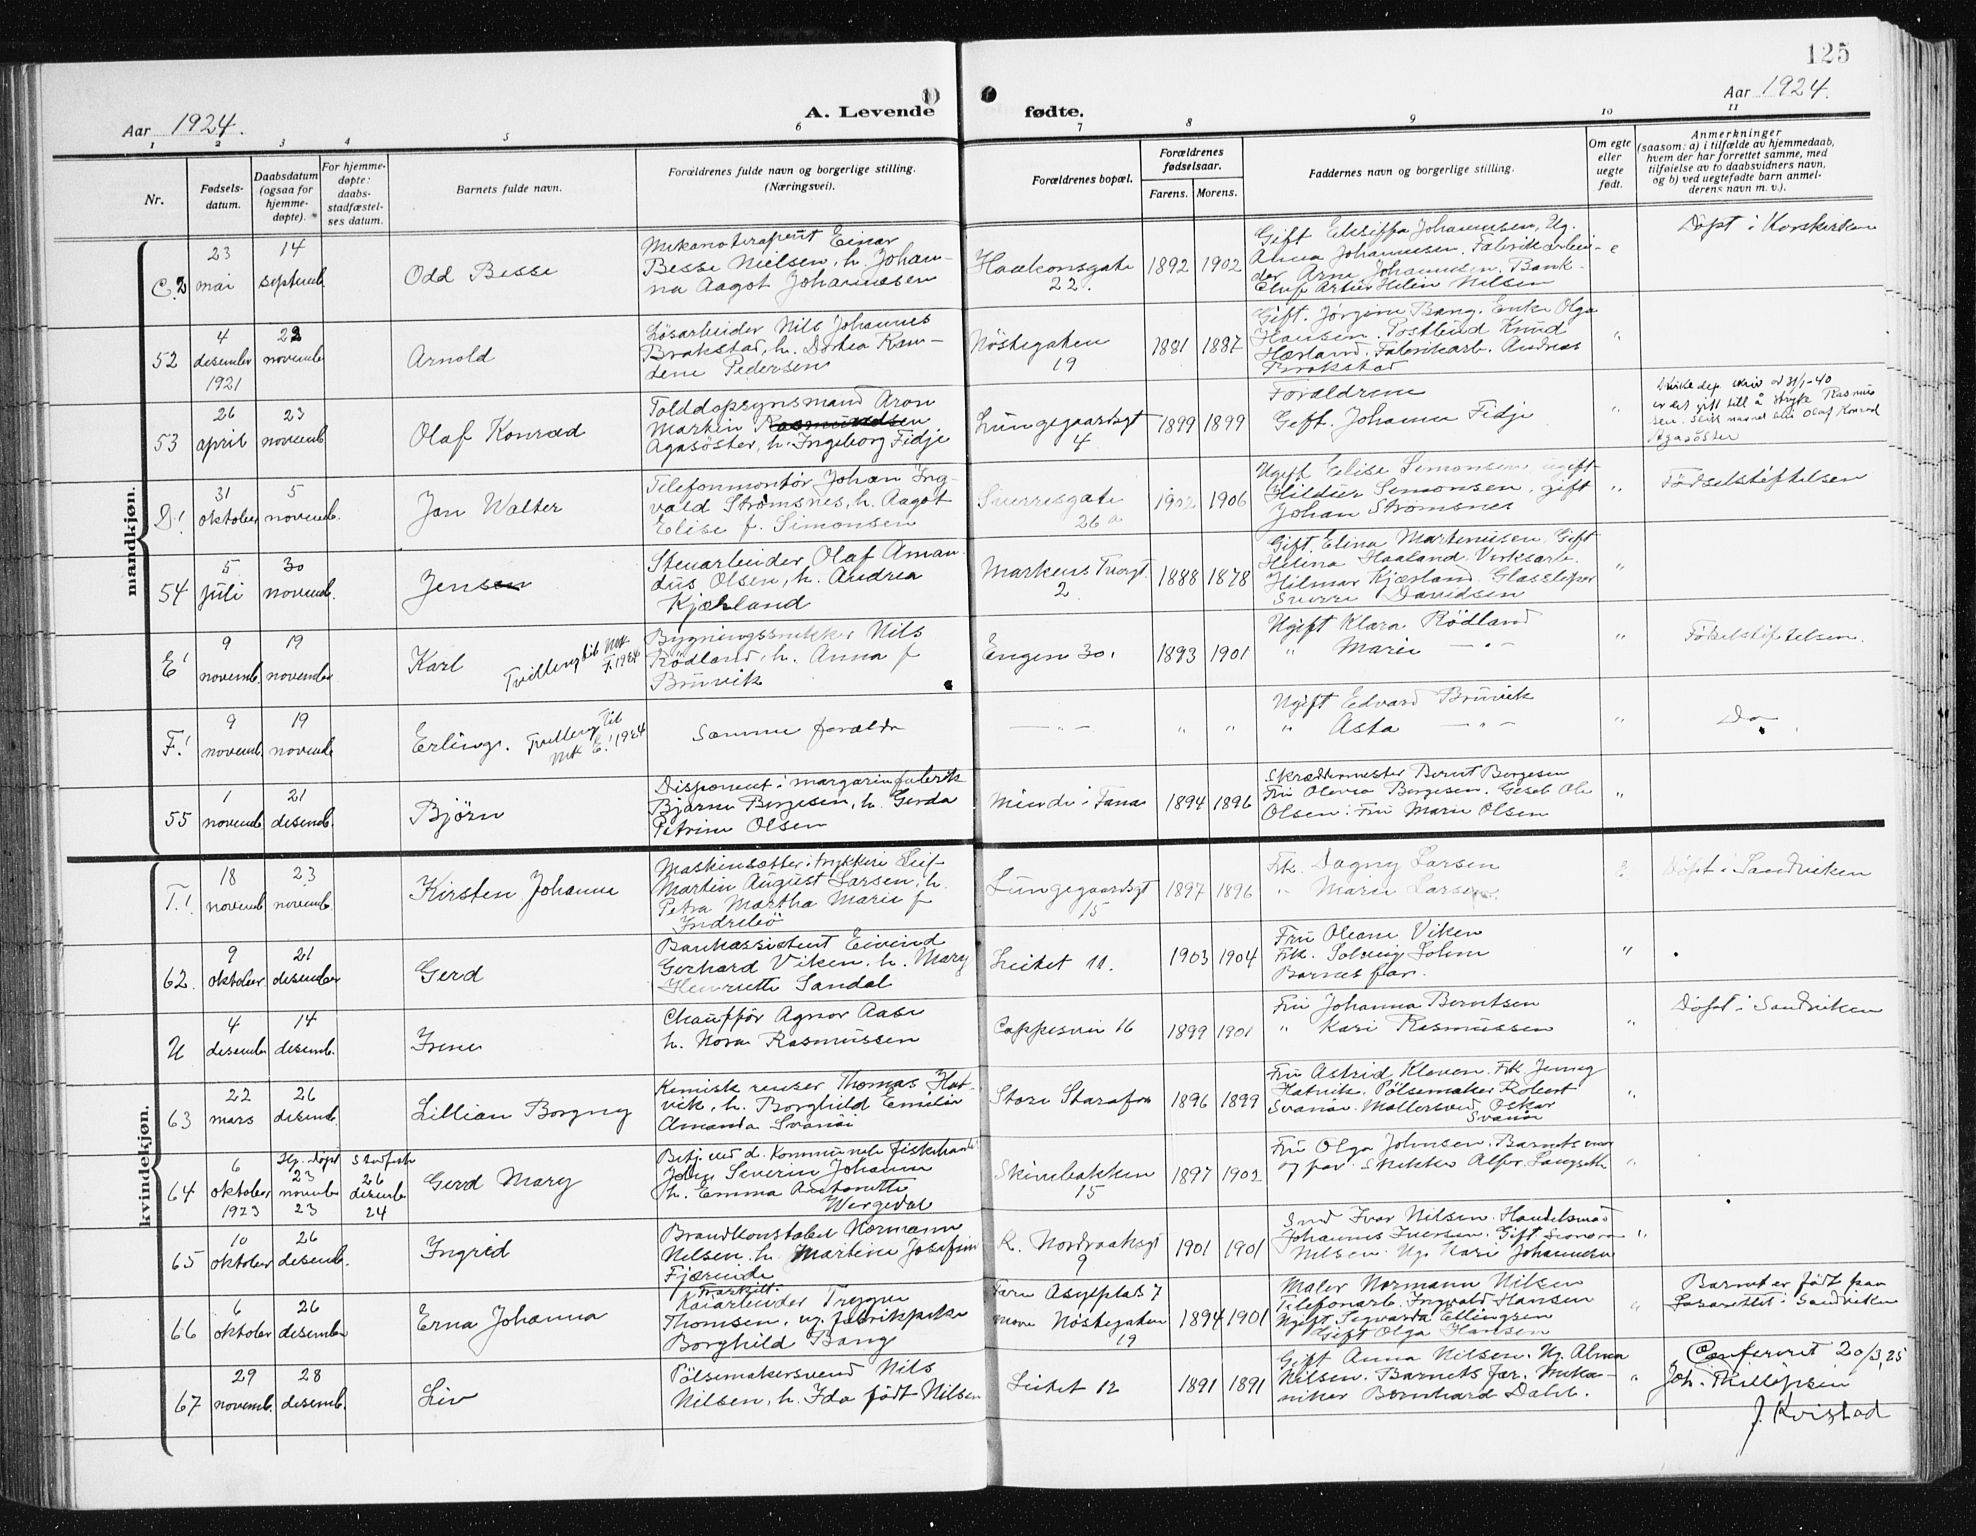 125
Aar 1924.
A. Levende fødte.
Aar 1924.
1 2 3 4 5 6 7 8 9 10 11
Nr.
Fødsels-
datum.
Daabsdatum
(ogsaa for
hjemme-
døpte).
For hjemme-
døpte:
daabs-
stadfæstel-
ses datum.
Barnets fulde navn.
Forældrenes fulde navn og borgerlige stilling.
(Næringsvei).
Forældrenes bopæl.
Forældrenes
fødselsaar.
Farens. Morens.
Faddernes navn og borgerlige stilling.
Om egte
eller
uegte
født.
Anmerkninger
(saasom: a) i tilfælde av hjemmedaab,
hvem der har forrettet samme, med
tilføielse av to daabsvidners navn,
og b) ved uegtefødte barn anmel-
derens navn m. v.).
mandkjøn.
C.2
23
mai
14
septemb.
Odd Besse
Mekanoterapeut Einar
Besse Nielsen, h. Johan-
na Aagot Johannesen
Haakonsgate
22.
1892 1902
Anna Johannesen. Fabrikarbei-
der Arne Johannesen. Bank-
e
Døpt i Korskirken
52
4
desember
1921
22
novemb
Arnold
Løsarbeider Nils Johannes
Brakstad, h. Dorthea Kam-
dene Pedersen
Nøstegaten
19
1881 1887
Gift. Jørgine Bang. Enke Olga
Hansen. Postbud Knud
Hærland. Fabrikarb. Andreas
Brakstad
"
53
26
april
23
novemb
Olaf Konrad
Tolddopsynsmand Aron
Martin Rasmundsen
Agasøster, h. Ingeborg Fidje
Lungegaardsgt
4
1899 1899
Forældrene
Gift. Johanna Fidje
"
er det gitt till å stryke Rasmus
sen. Slik navnet blir Olaf Konrad
Agasøster
D!
31
oktober
5
novemb.
Jan Walter
Telefonmontør Johan Ing-
vald Strømsnes, h. Aagot
Elise f. Simonsen
Sverresgate
26 a
1902 1906
Ugift Elise Simonsen ugift
Hildur Simonsen. gift
Johan Strømsnes
"
Fødselstiftelsen
54
5
juli
30
novemb.
Jensen
Stenarbeider Olaf Aman
dus Olsen, h. Andrea
Kjærland
Markens Tvergt
2
1888 1878
Gift. Elina Martinusen. Gift
Helina Haaland. Verksarb.
Hilmar Kjærland. Glassliper
Sverre Davidsen
"
E!
9
novemb.
19
november
Karl
Tvilling til Mrk
F. 1924
Bygningssnekker Nils
Rødland, h. Anna f
Bruvik
Engen 30.
1893 1901
Ugift Klara Rødland
" Marie — " —
"
Fødselstiftelsen.
F.!
9
novemb.
19
novemb
Erling.
Tvilling til
Mrk E! 1924
Samme foreldr
— " —
" "
Ugift Edvard Bruvik
" Asta — " —
"
Do
55
1
novemb.
21
desemb.
Bjørn
Disponent i margarinfabrik
Bjarne Børgesen, h. Gerda
Petrine Olsen
Minde i Fana
1894 1896
Skræddermester Bernt Børgesen
Fru Olevia Børgesen. Gesel Ole
Olsen. Fru Marie Olsen
"
kvindekjøn.
T.!
18
novemb
23
novemb.
Kirsten Johanne
Maskinsætter i trykkeri Leif
Martin August Larsen, h.
Petra Martha Marie f
Indrebø
Lungegaardsgt
15
1897 1896
Frk. Dagny Larsen
" Marie Larsen
Døpt i Sandviken
62.
9
oktober
21
desember
Gerd
Bankassistent Eivind
Gerhard Viken, h. Mary
Henriette Sandal
Leitet 11.
1903 1904
Fru Oleane Viken
Frk. Solveig Sohm
Barnets far.
"
U
4
desemb
14
desemb.
Irene
Chauffør Agnar Aase
h. Nora Rasmussen
Cappesvei 16
1899 1901
Fru Johanna Berntsen
" Kari Rasmussen
"
Døpt i Sandviken
63
22
mars
26
desemb.
Lillian Borgny
Kemisk renser Thomas Hat-
vik, h. Borghild Emilie
Amanda Svanøi
Store Starafos
1896 1899
Fru Astrid Kleven. Frk Jenny
Hatvik. Pølsemaker Robert
Svanøi. Møllersvend Oskar
Svanøi
"
64
6
oktober
1923
Hj. døpt
23
november
23
Stadfestet
26
desemb
24
Gerd Mary
Betj. ved d. Kommunale fiskehandel
Johan Severin Johanne
h. Emma Antonette
Wergedal
Skivebakken
15
1897 1902
Fru Olga Johnsen. Barnets mor
og far. Snekker Alfr. Langsæth
"
65
10
oktober
26
desemb.
Ingrid
Brandkonstabel Normann
Nilsen, h. Martine Josefine
Fjæreide
R. Nordraaksgt
9
1901 1901
Smed Ivar Nilsen. Handelsmand
Johannes Iversen. Gift Leonora
Nilsen. Ug. Kari Johannesen
"
66
6
oktober
26
desember
Erna Johanna
Fraskilt
Kaiarbeider Trygve
Thomsen, ug. fabrikpike
Borghild Bang
Faren Asylplads 7
moren Nøstegaten
19
1894 1901
Maler Normann Nilsen
Telefonarb. Ingvald Hansen
Ugift Segvarda Ellingsen
Gift Olga Hansen
"
Barnet er født paa
Lasarettet i Sandviken
67
29
novemb.
28
desemb.
Liv
Pølsemakersvend Nils
Nilsen, h. Ida født Nilsen
Leitet 12
1891 1891
Gift Anna Nilsen. Ug. Alma
Nilsen. Barnets far. Meka-
niker Bernhard Dahl.
"
Conferert 20/3, 25
Joh. Phillipsen
J. Kvistad